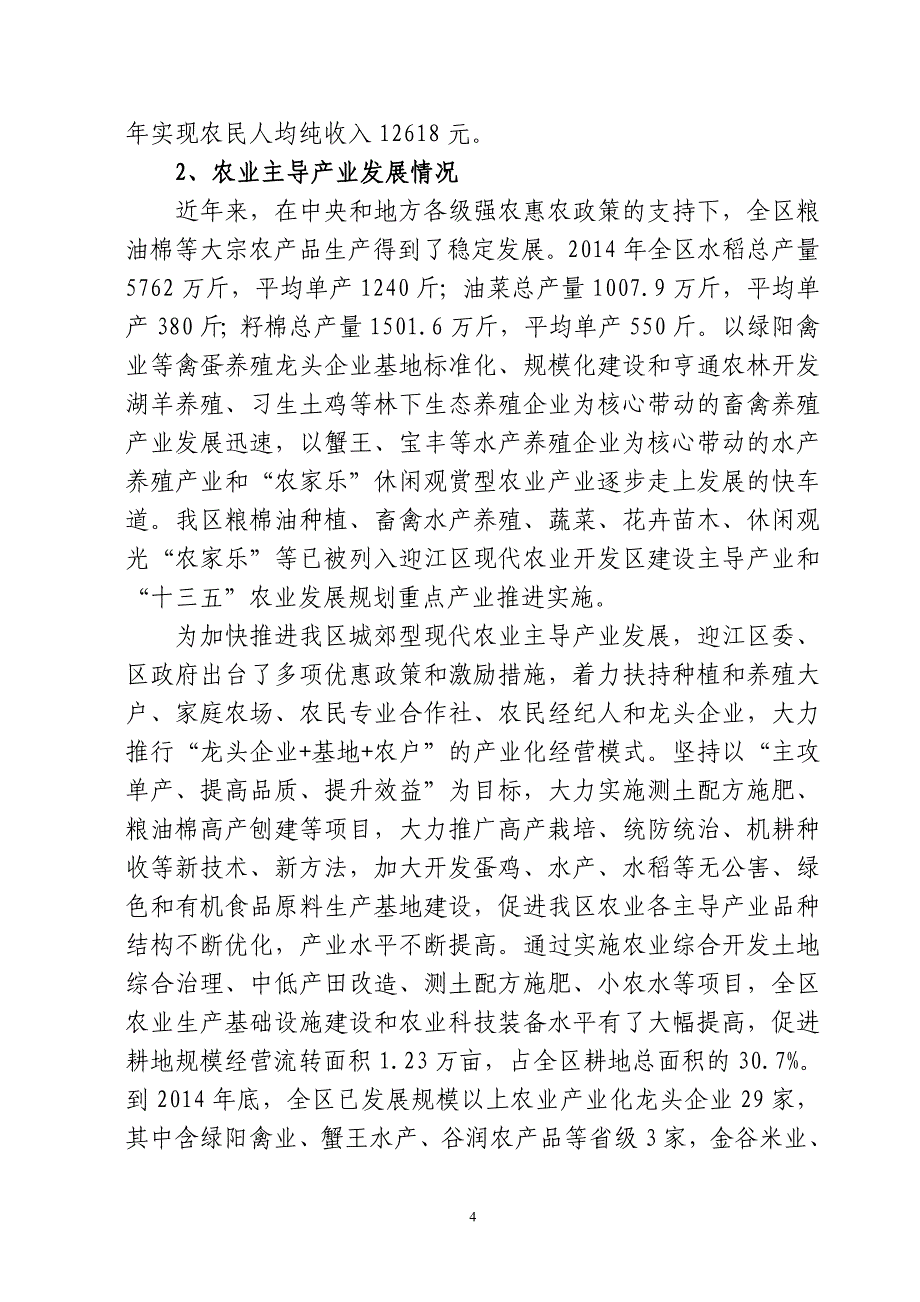 年实现农民人均纯收入 12618 元。
2、农业主导产业发展情况
近年来，在中央和地方各级强农惠农政策的支持下，全区粮
油棉等大宗农产品生产得到了稳定发展。2014 年全区水稻总产量
5762 万斤，平均单产 1240 斤；油菜总产量 1007.9 万斤，平均单
产 380 斤；籽棉总产量 1501.6 万斤，平均单产 550 斤。以绿阳禽
业等禽蛋养殖龙头企业基地标准化、规模化建设和亨通农林开发
湖羊养殖、习生土鸡等林下生态养殖企业为核心带动的畜禽养殖
产业发展迅速，以蟹王、宝丰等水产养殖企业为核心带动的水产
养殖产业和“农家乐”休闲观赏型农业产业逐步走上发展的快车
道。我区粮棉油种植、畜禽水产养殖、蔬菜、花卉苗木、休闲观
光“农家乐”等已被列入迎江区现代农业开发区建设主导产业和
“十三五”农业发展规划重点产业推进实施。
为加快推进我区城郊型现代农业主导产业发展，迎江区委、
区政府出台了多项优惠政策和激励措施，着力扶持种植和养殖大
户、家庭农场、农民专业合作社、农民经纪人和龙头企业，大力
推行“龙头企业+基地+农户”的产业化经营模式。坚持以“主攻
单产、提高品质、提升效益”为目标，大力实施测土配方施肥、
粮油棉高产刨建等项目，大力推广高产栽培、统防统治、机耕种
收等新技术、新方法，加大开发蛋鸡、水产、水稻等无公害、绿
色和有机食品原料生产基地建设，促进我区农业各主导产业品种
结构不断优化，产业水平不断提高。通过实施农业综合开发土地
综合治理、中低产田改造、测土配方施肥、小农水等项目，全区
农业生产基础设施建设和农业科技装备水平有了大幅提高，促进
耕地规模经营流转面积 1.23 万亩，占全区耕地总面积的 30.7%。
到 2014 年底，全区已发展规模以上农业产业化龙头企业 29 家，
其中含绿阳禽业、蟹王水产、谷润农产品等省级 3 家，金谷米业、
4